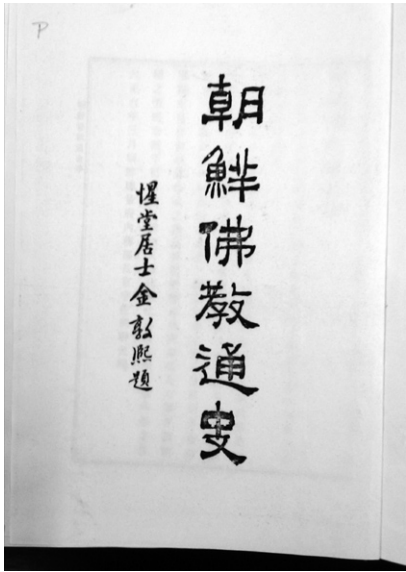 P
朝鮮佛教通史
惺堂居士金敦熙題